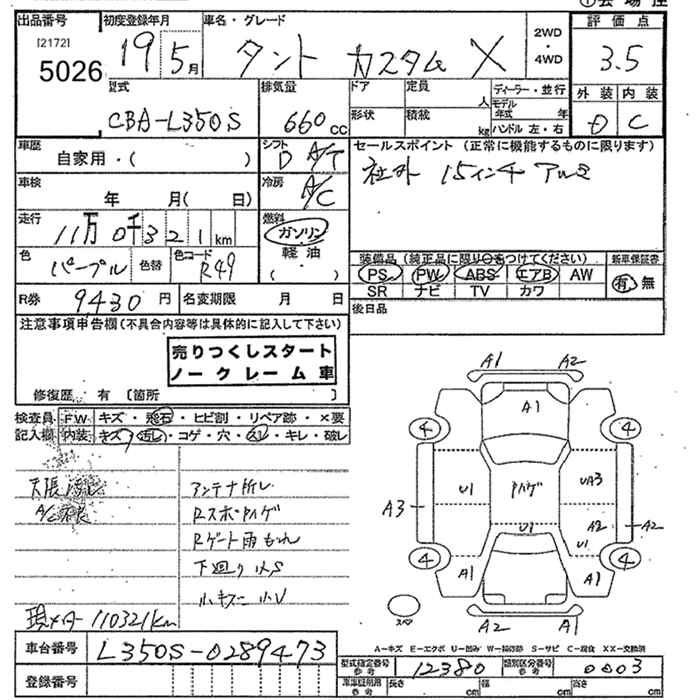 出品番号 初度登録年月 車名・グレード 2WD ・ 4WD 評価点
[2172]
5026 19 5月 タント カスタム X 3.5
型式 排気量 ドア 定員 人 ディーラー・並行 外装 内装
CBA-L350S 660cc 形状 積載 kg モデル年式 年 ハンドル 左・右 D C
車歴 自家用・( ) シフト D A/T セールスポイント (正常に機能するものに限ります)
社外 15インチ アルミ
車検 年 月(日) 冷房 A/C
走行 11万0千321km 燃料 ガソリン 軽油 ( ・ )
装備品 (純正品に限り○をつけてください) 新車保証書
色 パープル 色替 色コード R49 PS PW ABS エアB AW 有・無
SR ナビ TV カワ
R券 9430円 名変期限 月 日 後日品
注意事項申告欄(不具合内容等は具体的に記入して下さい)
売りつくしスタート
ノークレーム車
修復歴 有 〔箇所 〕
検査員 FW キズ・飛石・ヒビ割・リペア跡・×要
記入欄 内装 キズ・汚レ・コゲ・穴・スレ・キレ・破レ
天張汚レ アンテナ折レ
RスポハゲV
Rゲート雨もれ
下廻りサS
小キズ 小V
現メーター110321km
A1 A2
A1
4 4
A3 U1 Pハゲ UA3
U1 A2 A2
U1
4 4
A1 A1
スペア
A2 A1
A-キズ E-エクボ U-凹み W-補修跡 S-サビ C-腐食 XX-交換済
車台番号 L350S-0289473 型式指定番号 参考 12380 類別区分番号 参考 0003
登録番号 車庫証明用 参考 長さ cm 幅 cm 高さ cm